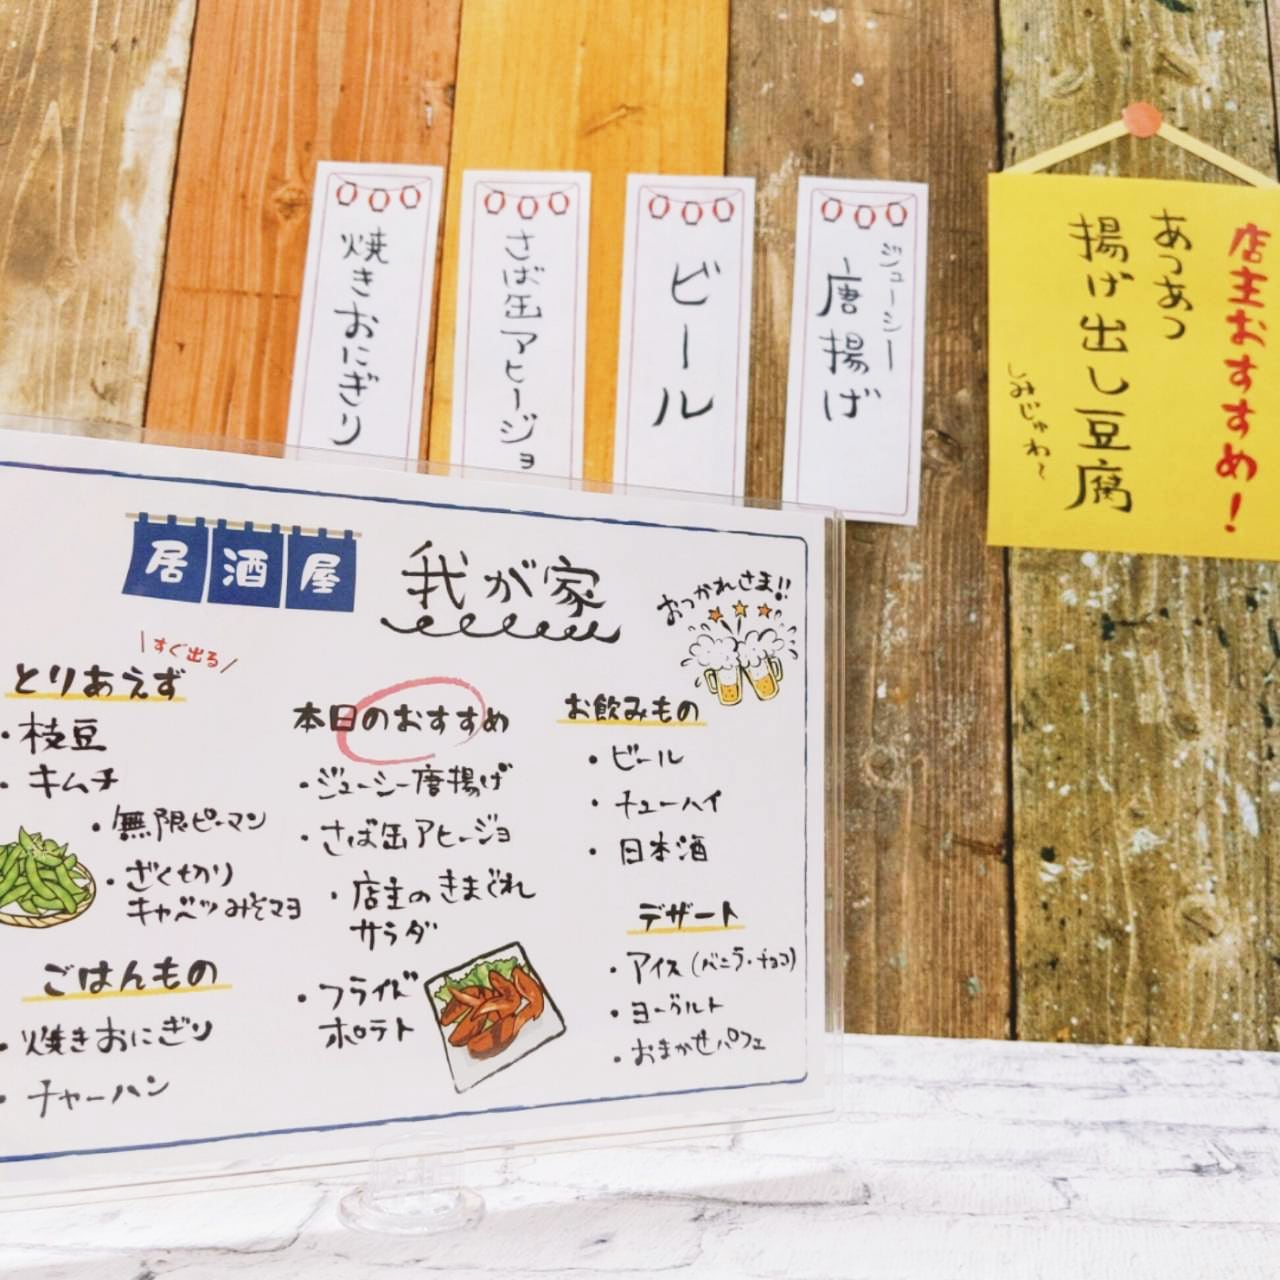 店主おすすめ!
あつあつ
揚げ出し豆腐
しみじゅわ〜
ジューシー
唐揚げ
ビール
さば缶アヒージョ
焼きおにぎり
居酒屋 我が家
おつかれさま!!
すぐ出る
とりあえず
・枝豆
・キムチ
・無限ピーマン
・ざく切り
キャベツみそマヨ
ごはんもの
・焼きおにぎり
・チャーハン
本日のおすすめ
・ジューシー唐揚げ
・さば缶アヒージョ
・店主のきまぐれ
サラダ
・フライド
ポテト
お飲みもの
・ビール
・チューハイ
・日本酒
デザート
・アイス(バニラ・チョコ)
・ヨーグルト
・おまかせパフェ